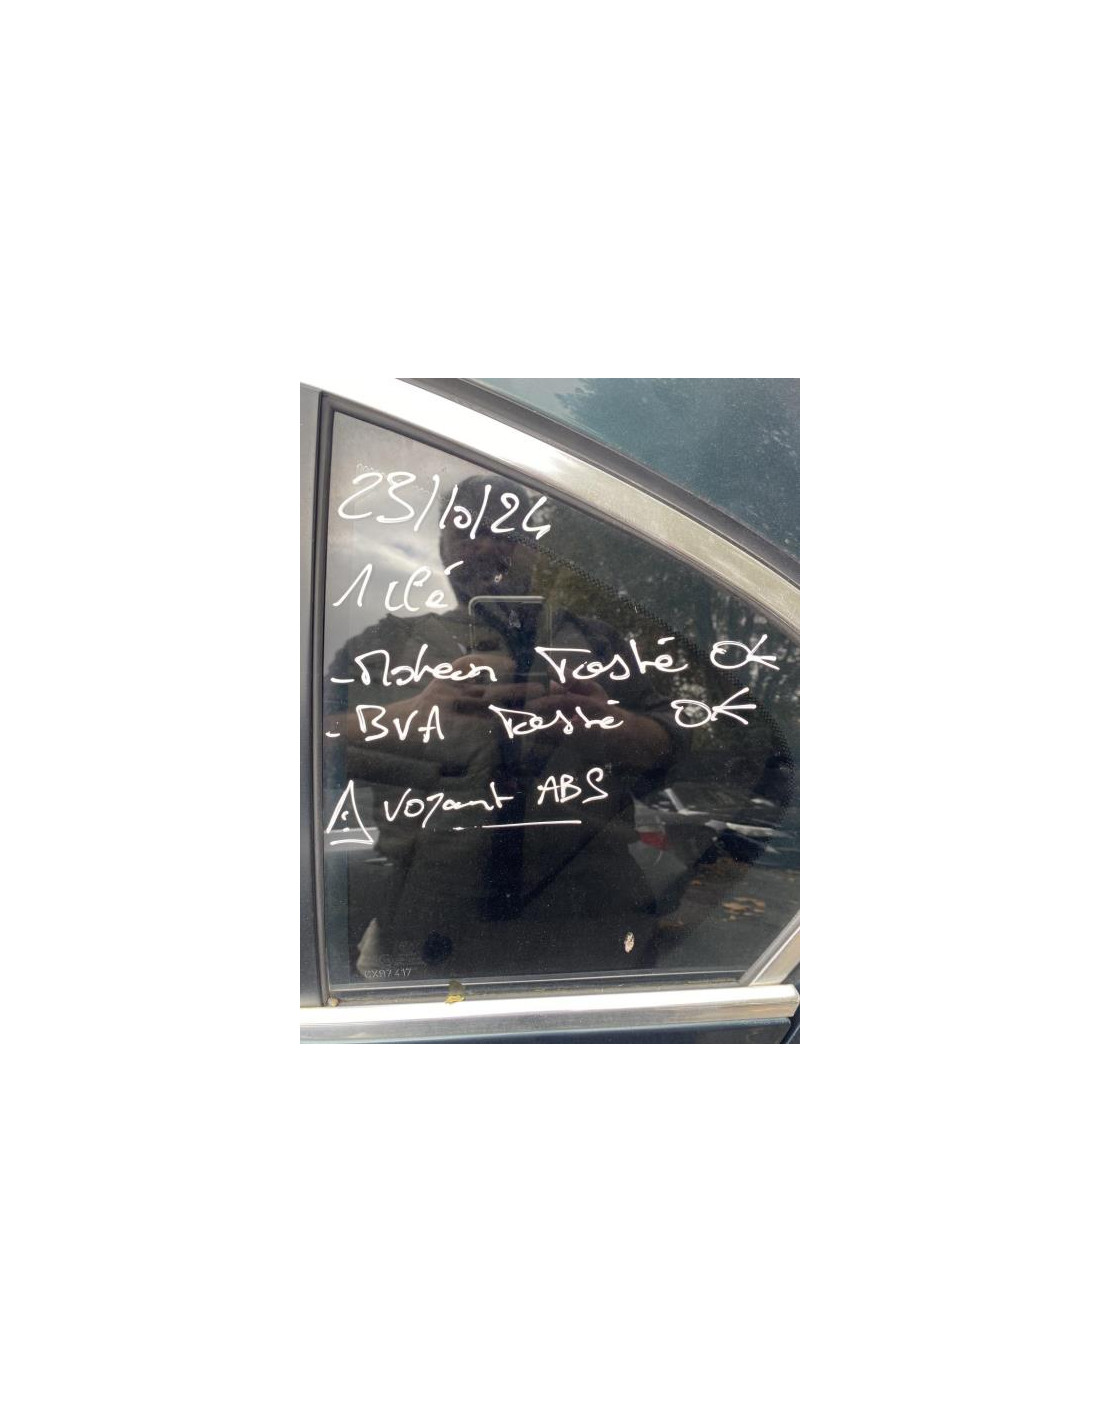 23/10/24
1 clé
- Moteur Testé OK
- BVA Testé OK
⚠ Voyant ABS